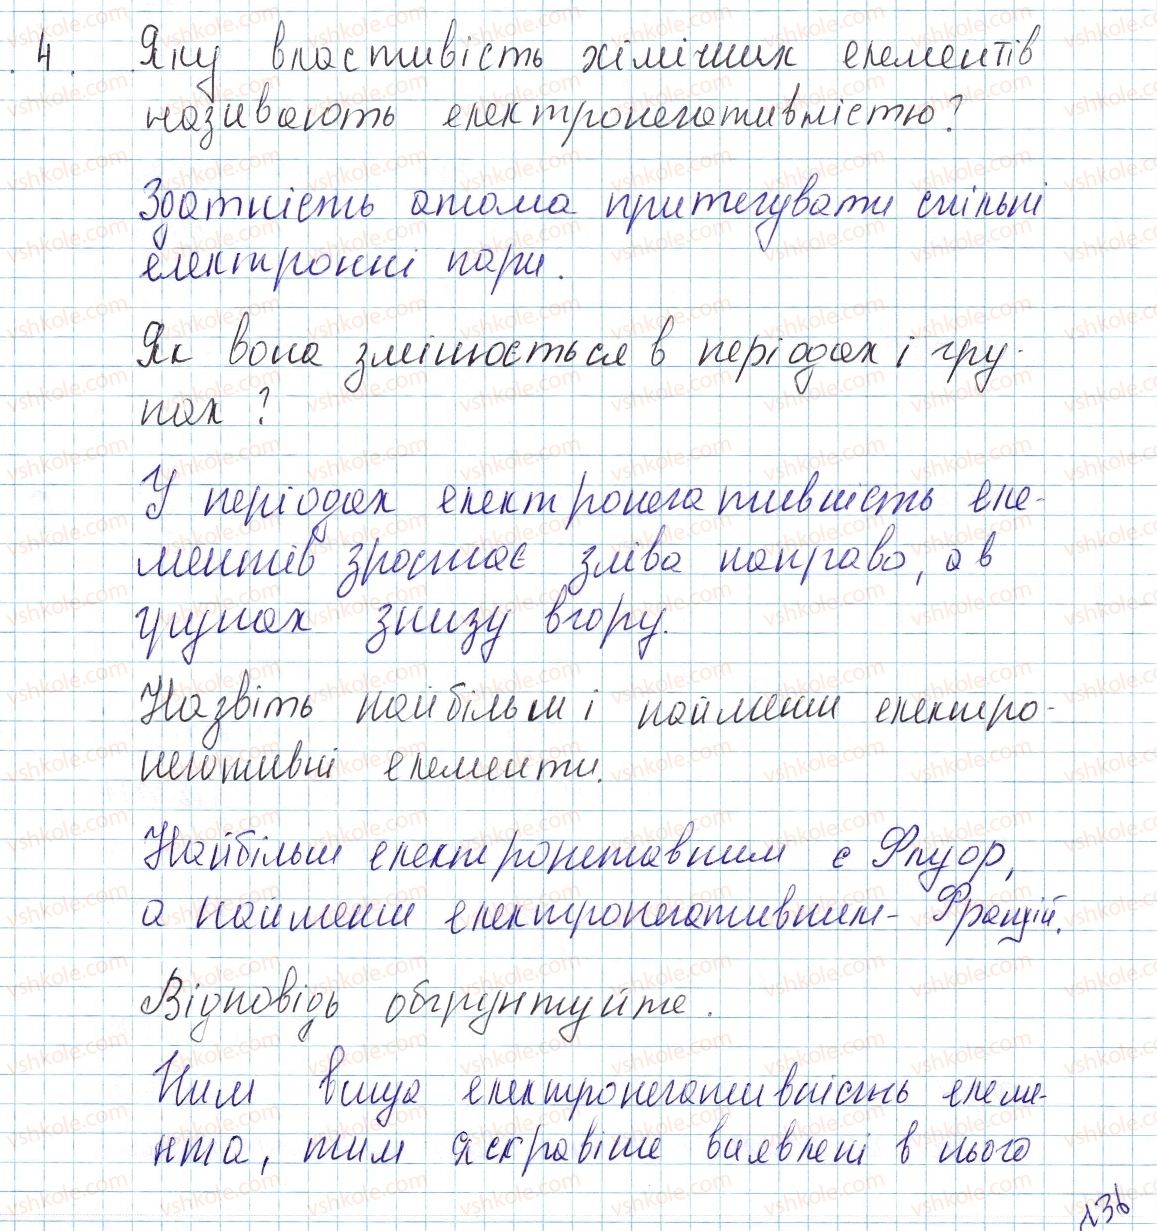 4. Яку властивість хімічних елементів
називають електронегативністю?
Здатність атома притягувати спільні
електронні пари.
Як вона змінюється в періодах і гру-
пах?
У періодах електронегативність еле-
ментів зростає зліва направо, а в
групах знизу вгору.
Назвіть найбільш і найменш електро-
негативні елементи.
Найбільш електронегавним є Флуор,
а найменш електронегативним - Францій.
Відповідь обґрунтуйте.
Чим вища електронегативність елеме-
нта, тим яскравіше виявлені в нього
136